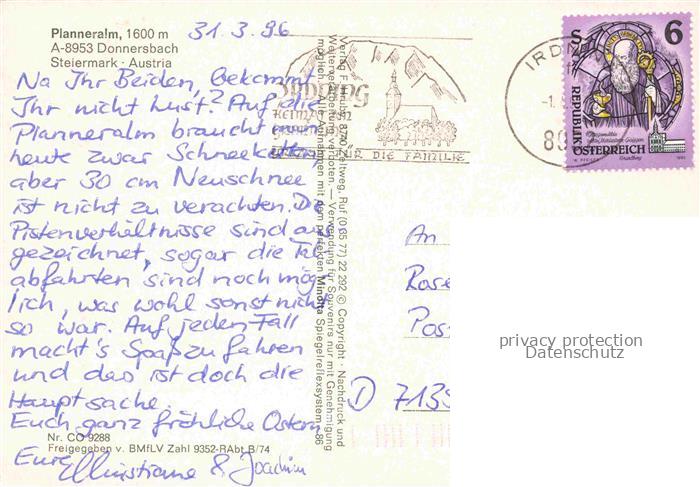 Planneralm, 1600 m
A-8953 Donnersbach
Steiermark · Austria
31.3.96
Na Ihr Beiden, bekommt
Ihr nicht Lust? Auf die
Planneralm braucht man
heute zwar Schneeketten,
aber 30 cm Neuschnee
ist nicht zu verachten. Die
Pistenverhältnisse sind aus
gezeichnet, sogar die Tal
abfahrten sind noch mög
lich, was wohl sonst nicht
so war. Auf jeden Fall
macht's Spaß zu fahren
und das ist doch die
Hauptsache.
Euch ganz fröhliche Ostern
Eure Christiane & Joachim
Nr. CO 9288
Freigegeben v. BMfLV Zahl 9352-RAbt B/74
Ruf (0 35 77) 22 292 © Copyright · Nachdruck und
Weiterverarbeitung verboten. — Verwendung für Souvenirs nur mit Genehmigung
möglich. Alle Aufnahmen mit dem perfekten Minolta Spiegelreflexsystem-86
FÜR DIE FAMILIE
IRDN
-1.
89
S 6
REPUBLIK
ÖSTERREICH
An
Rose
Pos
D 7139
privacy protection
Datenschutz